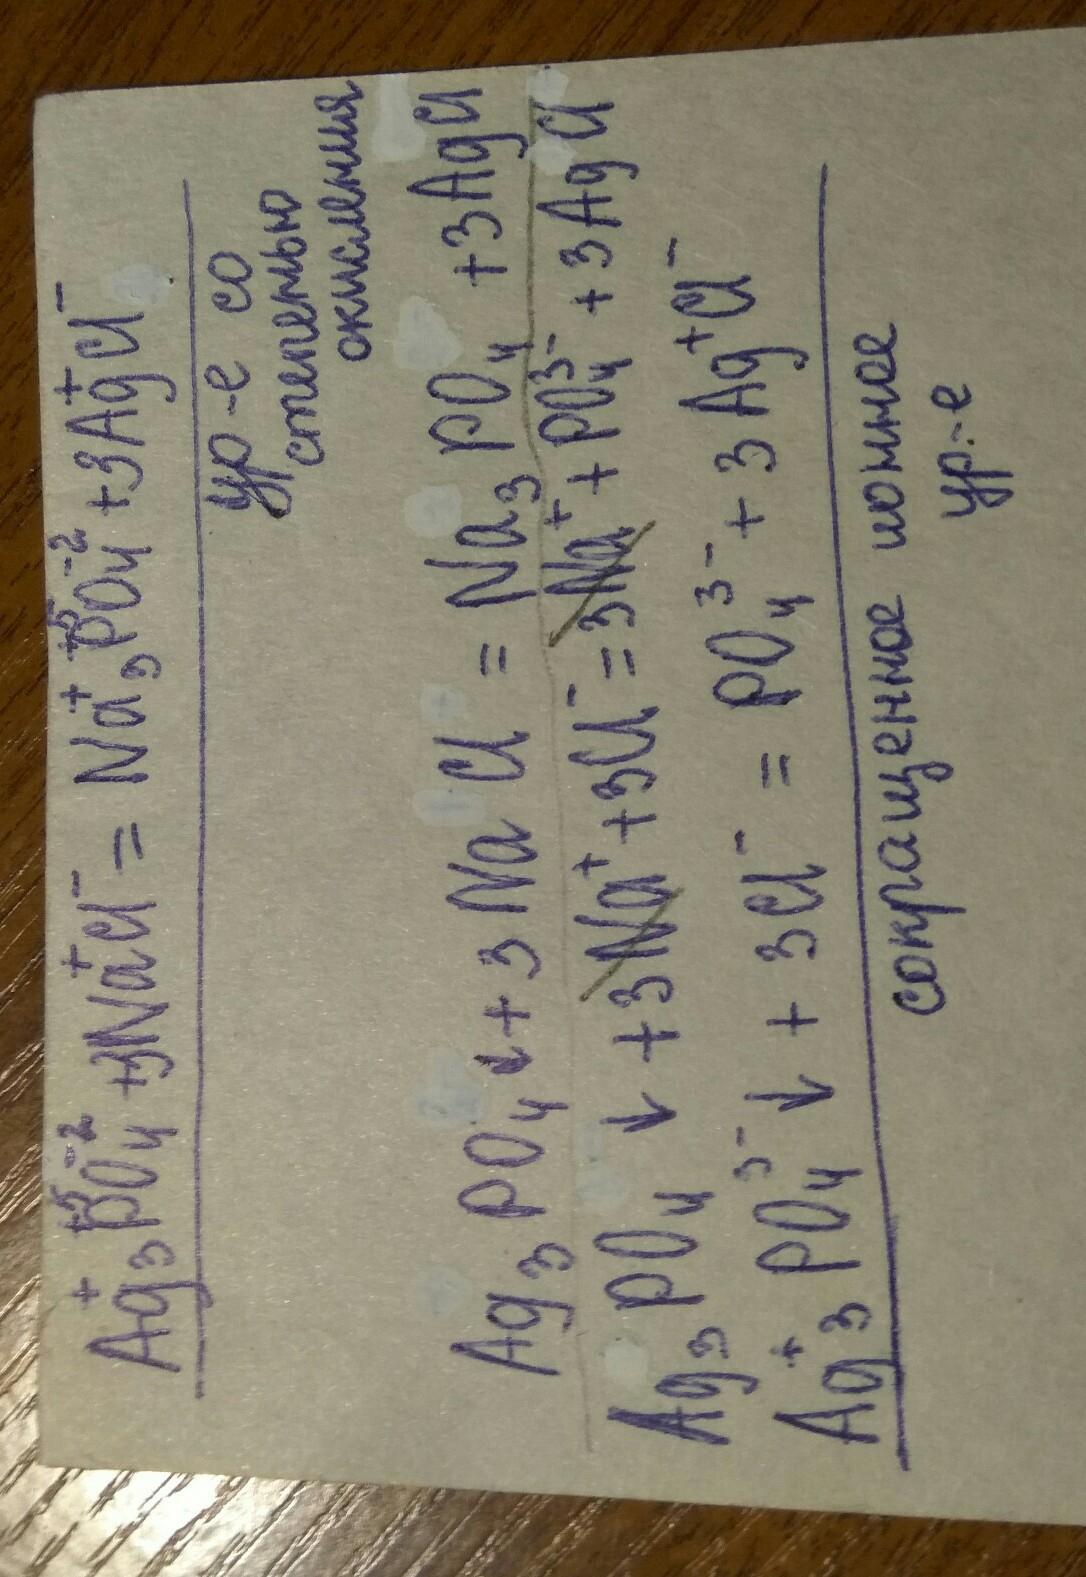 Ag⁺₃P⁺⁵O₄⁻² + 3Na⁺Cl⁻ = Na⁺₃P⁺⁵O₄⁻² + 3Ag⁺Cl⁻
ур-е со
степенью
окисления
Ag₃PO₄ + 3NaCl = Na₃PO₄ + 3AgCl
Ag₃PO₄ ↓ + 3Na⁺ + 3Cl⁻ = 3Na⁺ + PO₄³⁻ + 3AgCl
Ag⁺₃PO₄³⁻ ↓ + 3Cl⁻ = PO₄³⁻ + 3Ag⁺Cl⁻
сокращенное ионное
ур-е